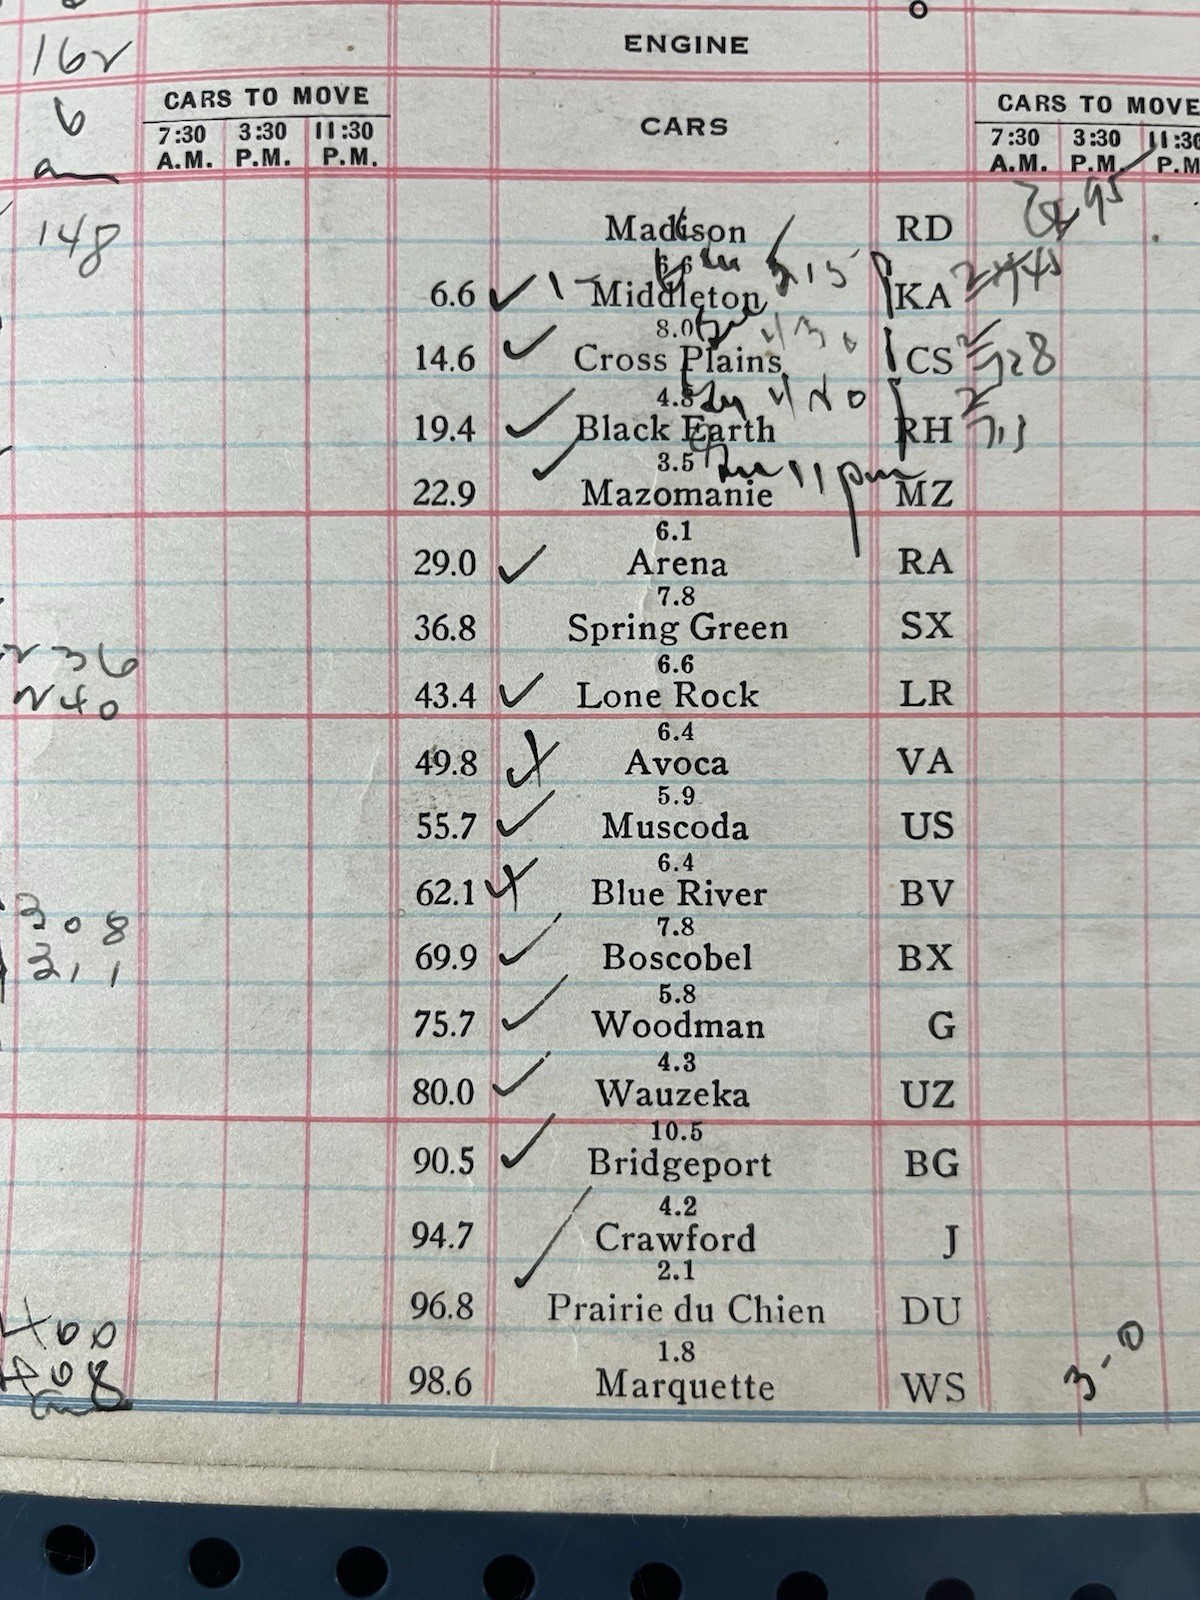 162
ENGINE
6
CARS TO MOVE
CARS
CARS TO MOVE
7:30 A.M. 3:30 P.M. 11:30 P.M.
7:30 A.M. 3:30 P.M. 11:30 P.M
148
Madison RD
6.6
6.6 Middleton KA
8.0
14.6 Cross Plains CS 28
4.8
19.4 Black Earth RH
3.5 11 pm
22.9 Mazomanie MZ
6.1
29.0 Arena RA
7.8
36.8 Spring Green SX
236
6.6
240
43.4 Lone Rock LR
6.4
49.8 Avoca VA
5.9
55.7 Muscoda US
6.4
62.1 Blue River BV
308
7.8
311
69.9 Boscobel BX
5.8
75.7 Woodman G
4.3
80.0 Wauzeka UZ
10.5
90.5 Bridgeport BG
4.2
94.7 Crawford J
2.1
96.8 Prairie du Chien DU
400
1.8
408
98.6 Marquette WS 3-0